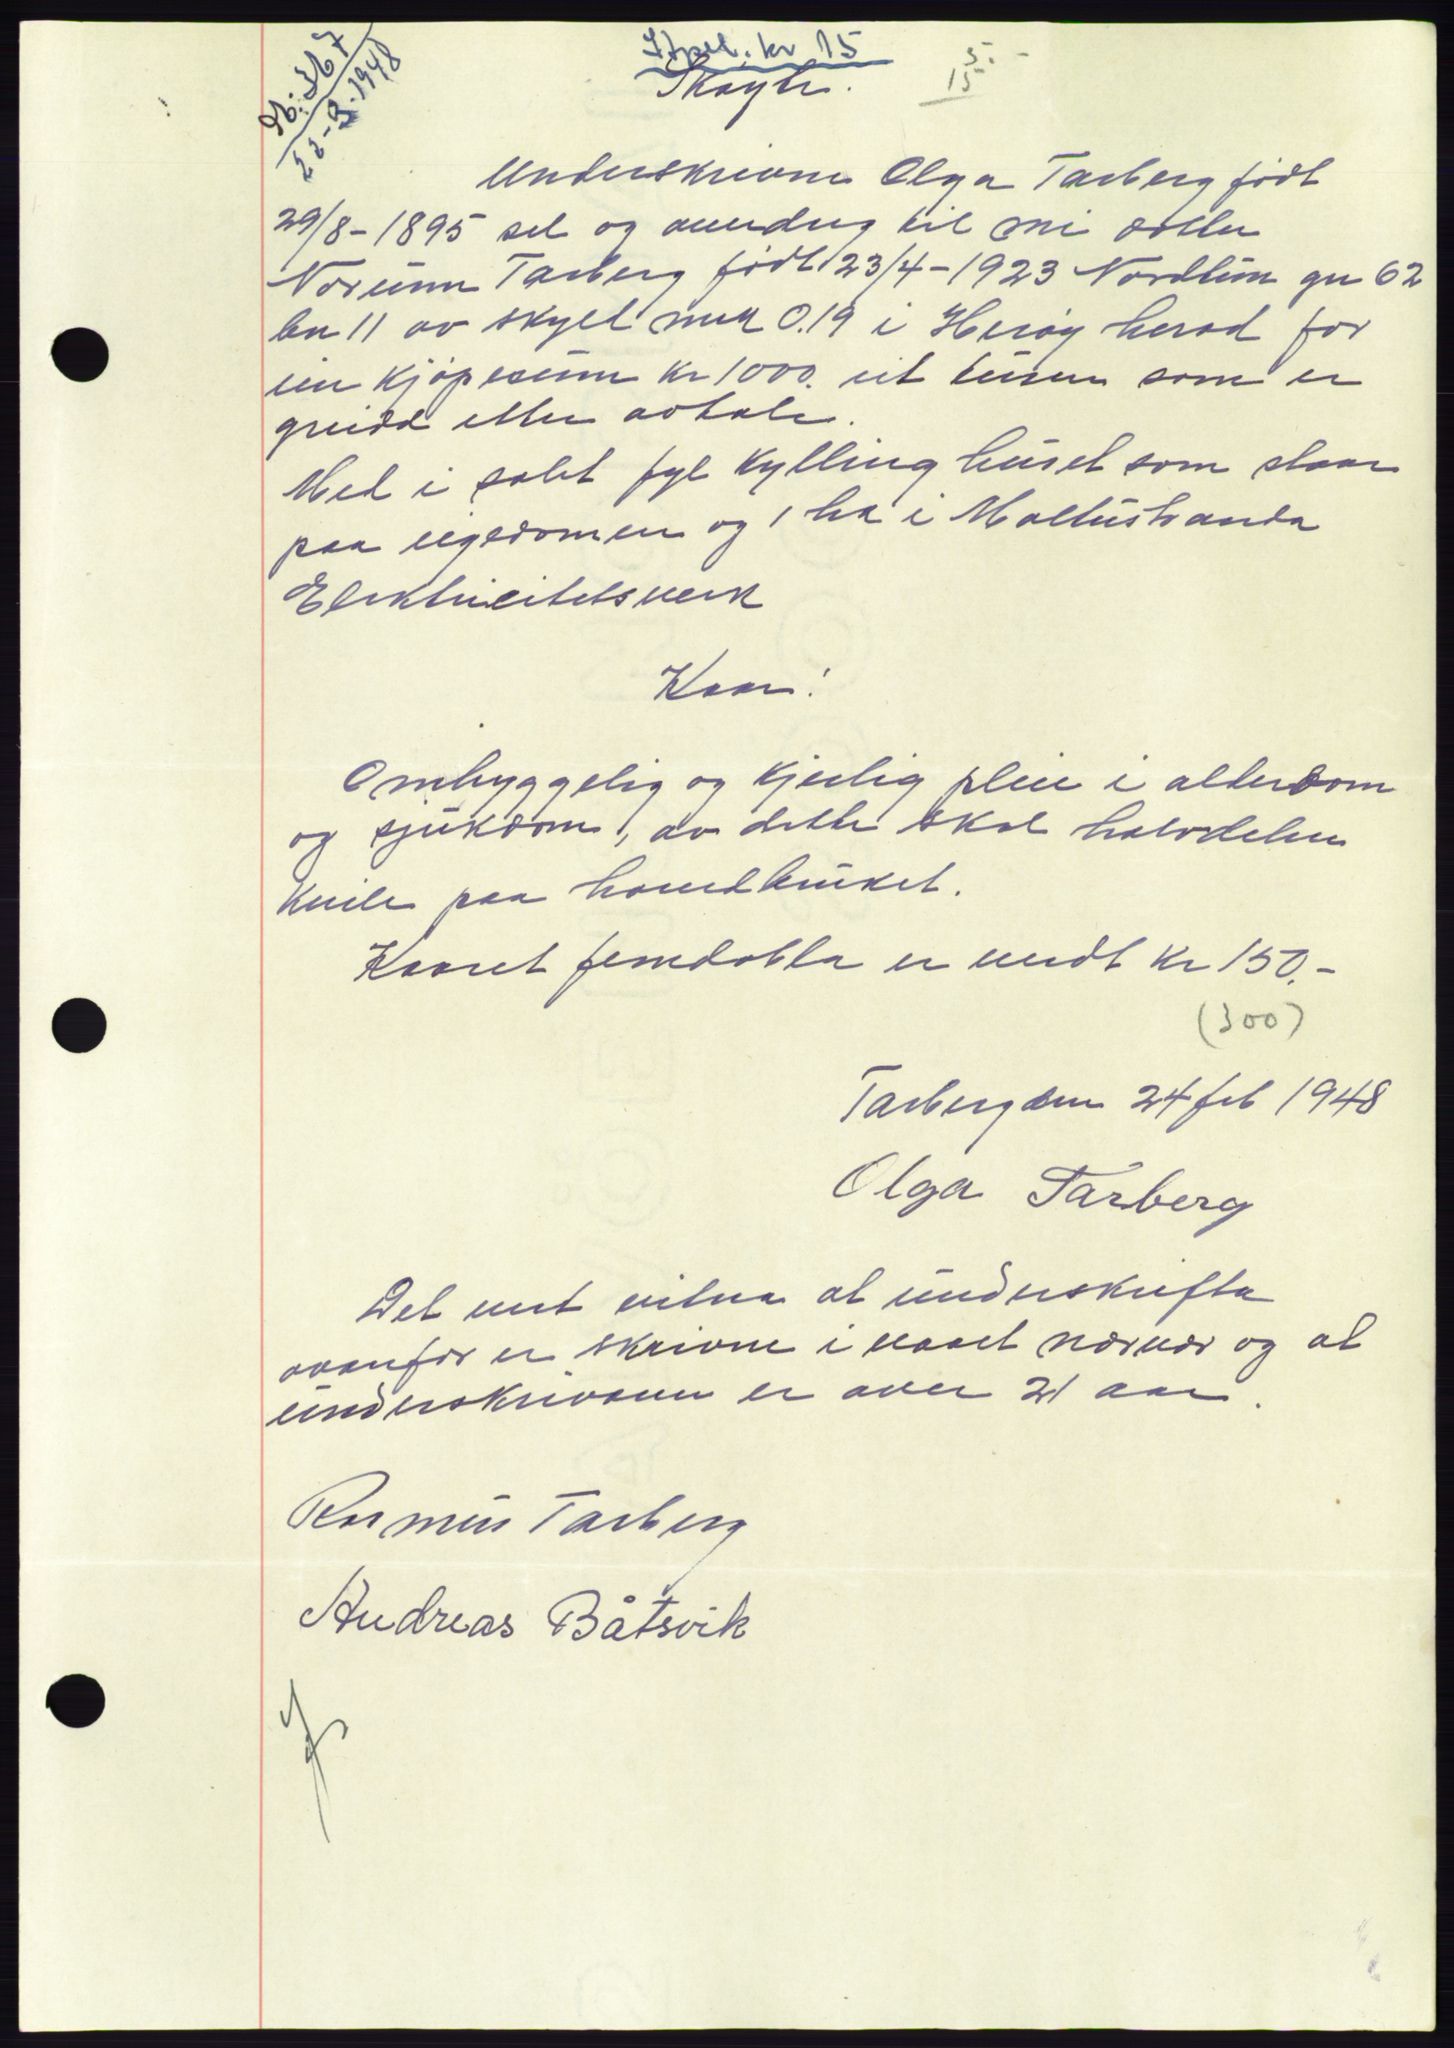 St.pel. kr 15
5.-
15
N: 367
22-3-1948
Skøyte.
Underskrivne Olga Tarberg født
29/8-1895 sel og overdreg til mi dotter
Norunn Tarberg født 23/4-1923 Nordtun gn 62
bn 11 av skyld mrk 0.19 i Herøy herad for
ein kjøpesum kr 1000. eit tusen som er
greidd etter avtale.
Med i salet fyl kyllinghuset som staar
paa eigedomen og 1 ha i Moltustranda
Elektricitetsverk
Kaar:
Omhyggelig og kjerlig pleie i alderdom
og sjukdom, av dette skal halvdelen
kvile paa hovedbruket.
Kaaret femdobla er verdt kr 150.-
(300)
Tarberg den 24 feb 1948
Olga Tarberg
Det vert vitna at underskrifta
ovanfor er skrivne i vaart nærvær og at
underskrivaren er over 21 aar.
Rasmus Tarberg
Andreas Båtsvik